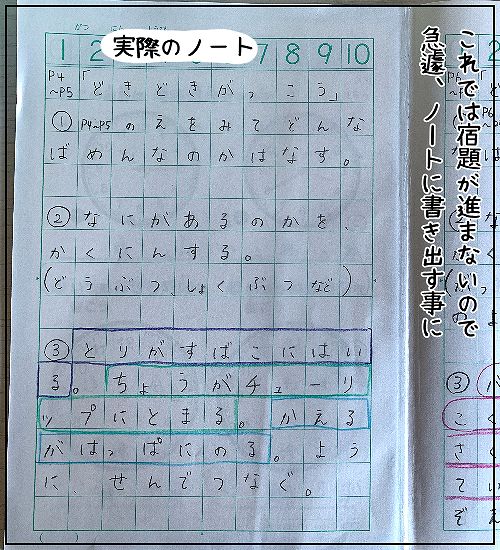 実際のノート
これでは宿題が進まないので
急遽、ノートに書き出す事に
1 2 7 8 9 10
P4~P5 「どきどきがっこう」
① P4~P5のえをみてどんな
ばめんなのかはなす。
② なにがあるのかを、
かくにんする。
(どうぶつしょくぶつなど)
③ とりがすばこにはい
る。ちょうがチューリ
ップにとまる。かえる
がはっぱにのる。よう
に、せんでつなぐ。
③
こ
さ
てい
ぞえ